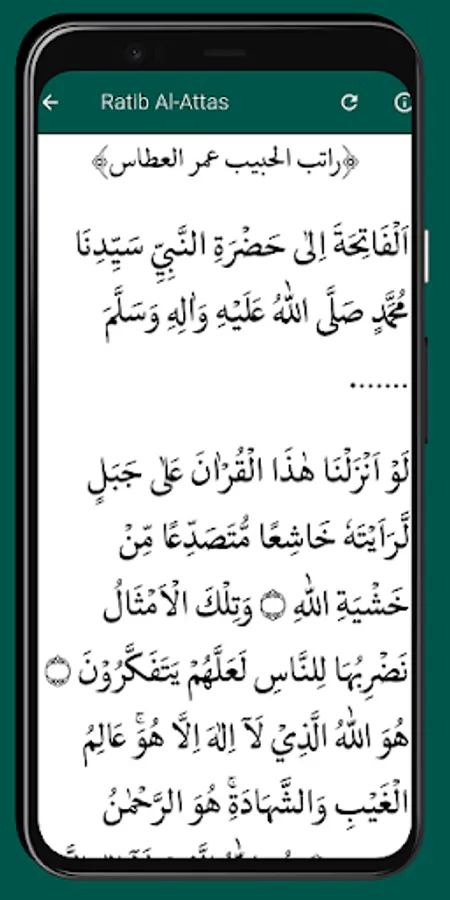 Ratib Al-Attas
﴿راتب الحبيب عمر العطاس﴾
اَلْفَاتِحَةَ اِلىٰ حَضْرَةِ النَّبِيِّ سَيِّدِنَا
مُحَمَّدٍ صَلَّى اللهُ عَلَيْهِ وَاٰلِهِ وَسَلَّمَ
.......
لَوْ اَنْزَلْنَا هٰذَا الْقُرْاٰنَ عَلىٰ جَبَلٍ
لَّرَاَيْتَهٗ خَاشِعًا مُّتَصَدِّعًا مِّنْ
خَشْيَةِ اللهِ ۝ وَتِلْكَ الْاَمْثَالُ
نَضْرِبُهَا لِلنَّاسِ لَعَلَّهُمْ يَتَفَكَّرُوْنَ ۝
هُوَ اللهُ الَّذِيْ لَآ اِلٰهَ اِلَّا هُوَۚ عَالِمُ
الْغَيْبِ وَالشَّهَادَةِۚ هُوَ الرَّحْمٰنُ